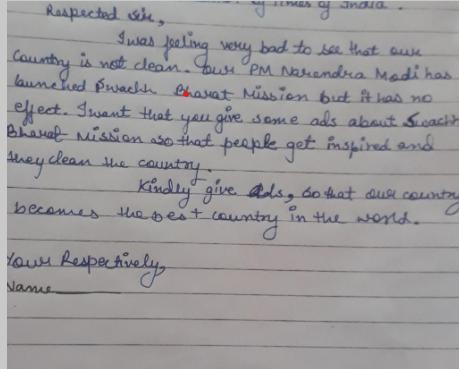 of Times of India.
Respected sir,
I was feeling very bad to see that our
Country is not clean. Our PM Narendra Modi has
launched Swachh Bharat Mission but it has no
effect. I want that you give some ads about Swachh
Bharat Mission aso that people get inspired and
they clean the country.
Kindly give ads, so that our country
becomes the best country in the world.
Your Respectively,
Name